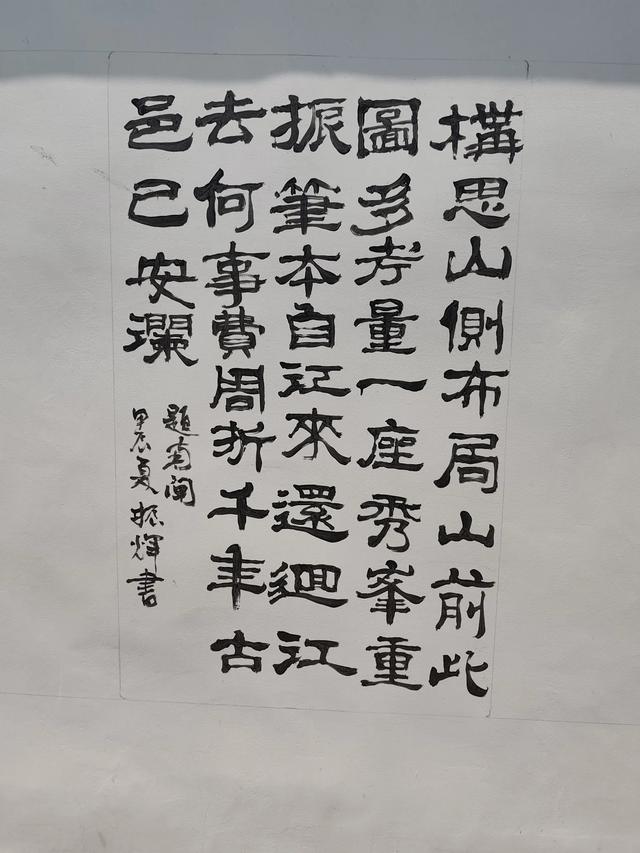 構思山側布局山前此
圖多考量一座秀峯重
振筆本自江來還迴江
去何事費周折千年古
邑已安瀾
題南閘
甲辰夏振輝書